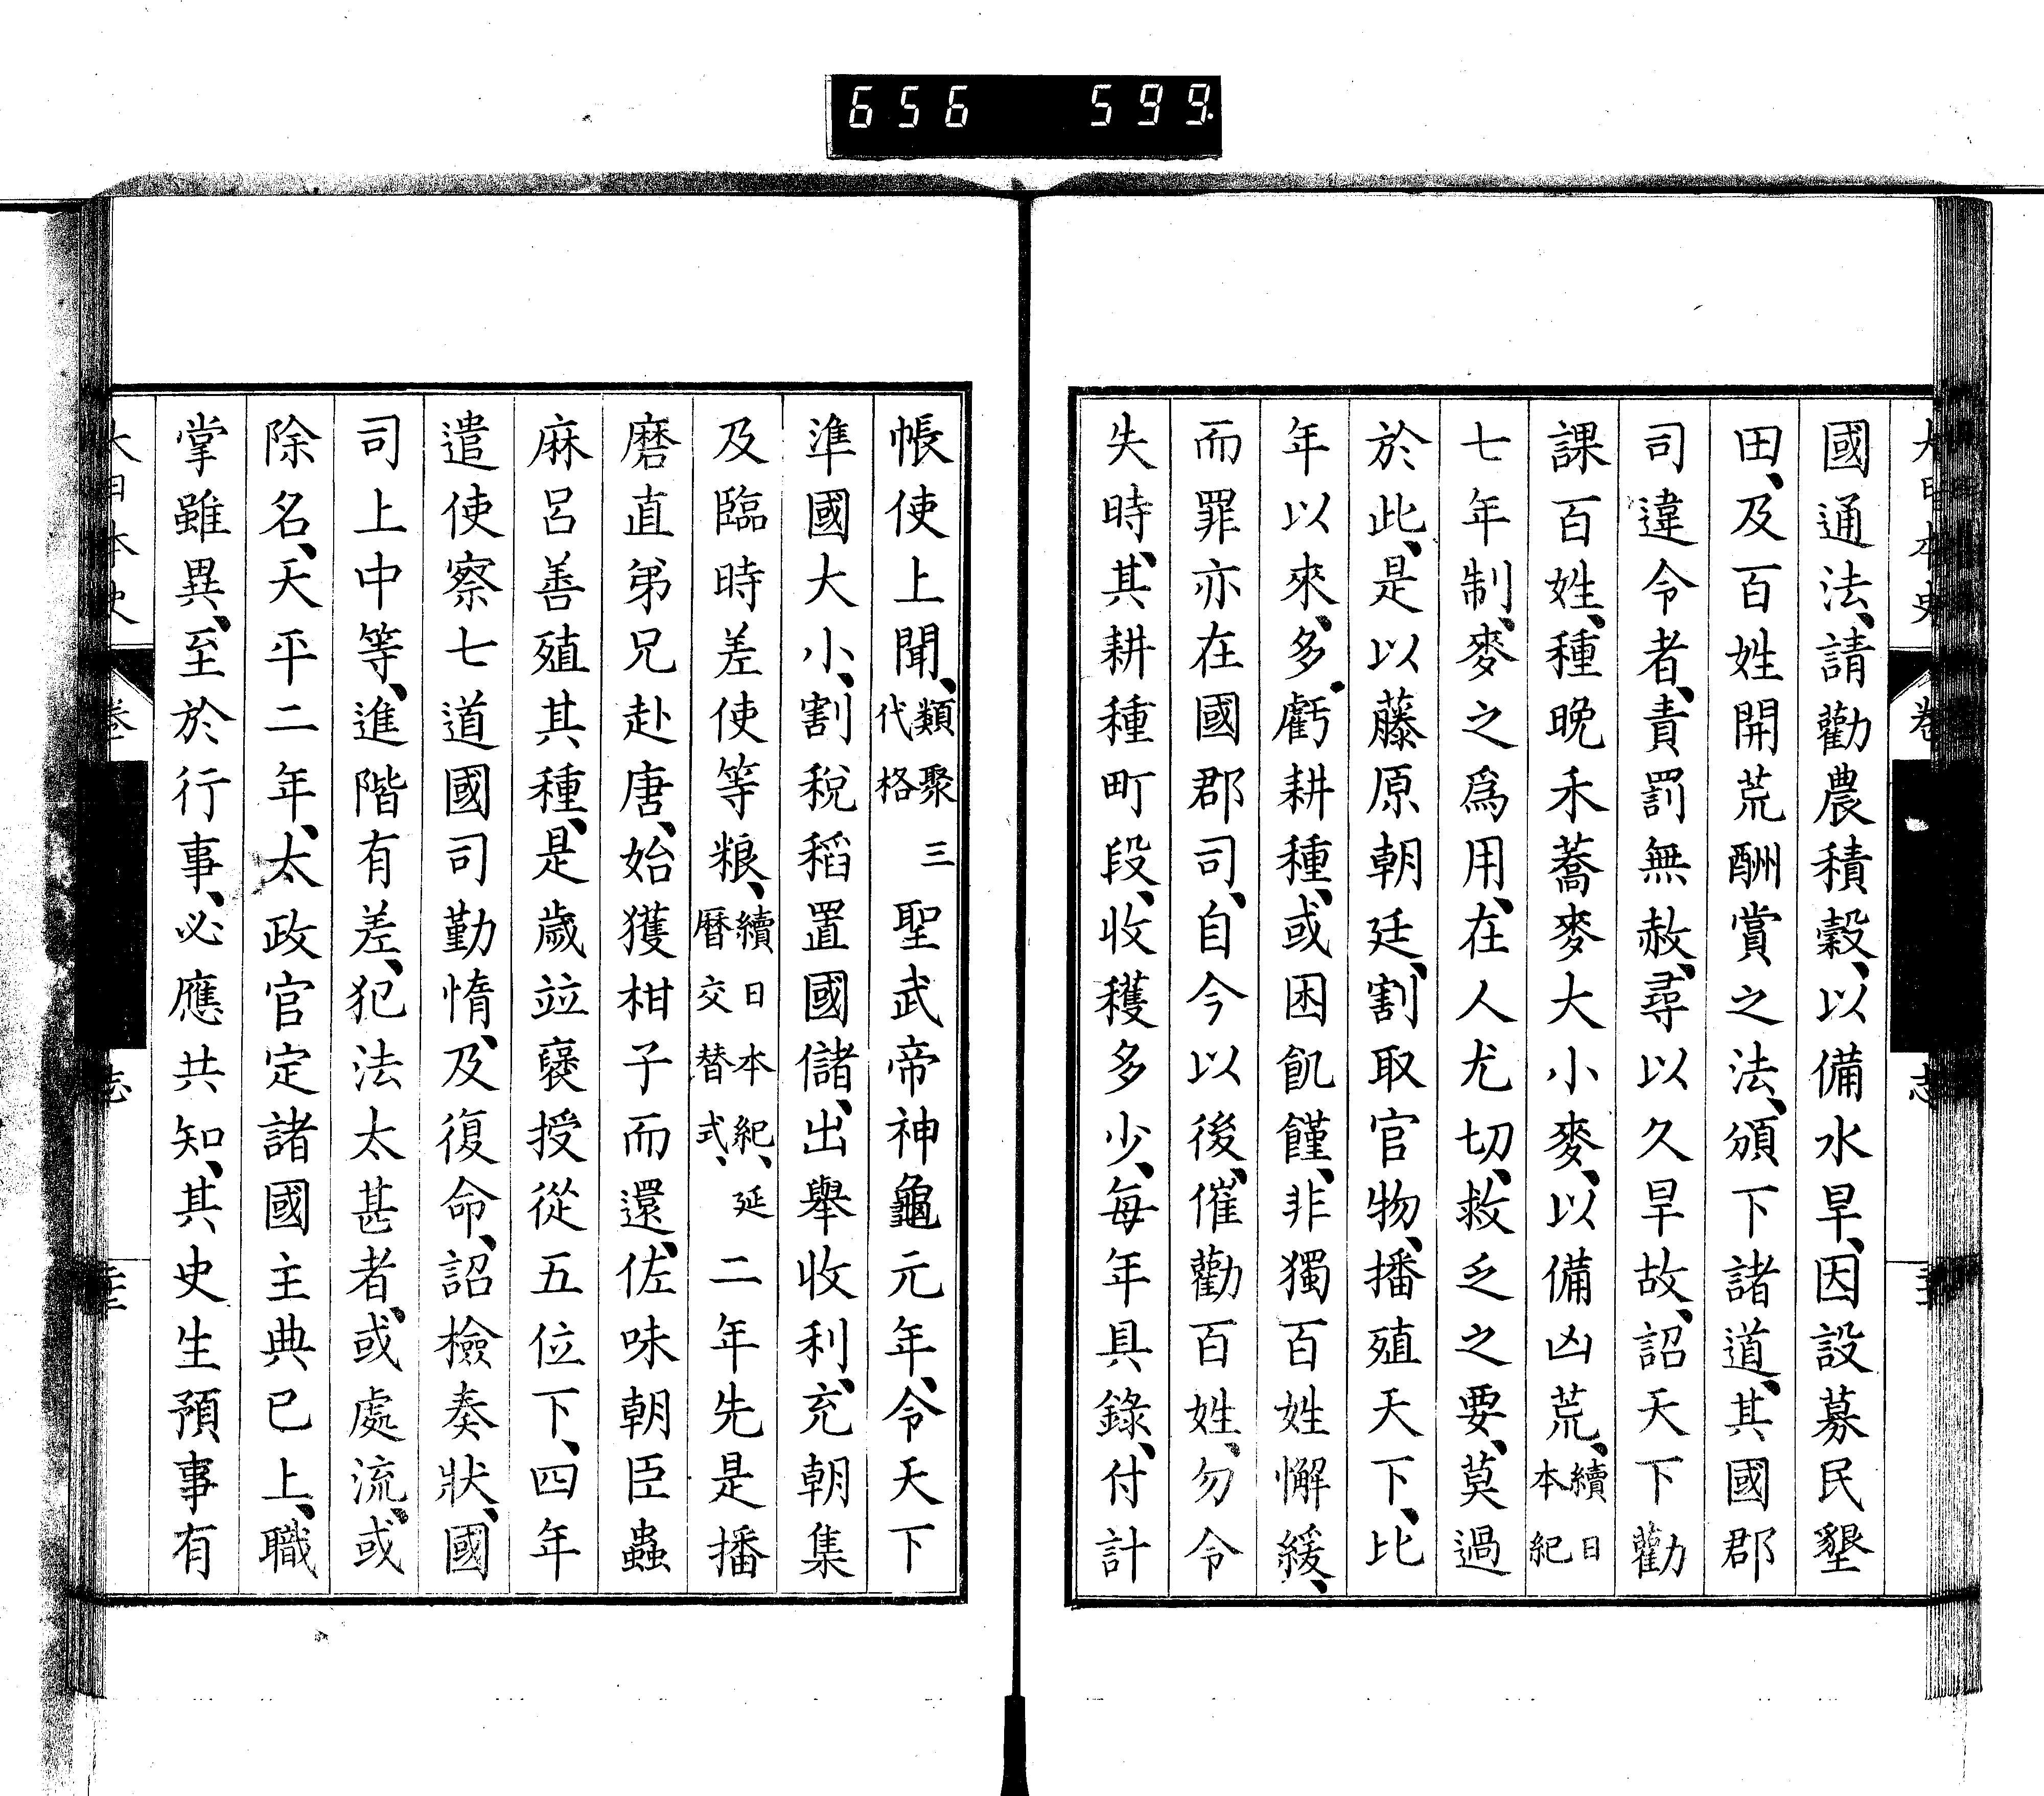 656 599.
國通法、請勸農積穀、以備水旱、因設募民墾
田、及百姓開荒酬賞之法、頒下諸道、其國郡
司違令者、責罰無赦、尋以久旱故、詔天下勸
課百姓、種晚禾蕎麥大小麥、以備凶荒、續日本紀
七年制、麥之爲用、在人尤切、救乏之要、莫過
於此、是以藤原朝廷、割取官物、播殖天下、比
年以來、多虧耕種、或困飢饉、非獨百姓懈緩、
而罪亦在國郡司、自今以後、催勸百姓、勿令
失時、其耕種町段、收穫多少、每年具錄、付計
帳使上聞、類聚三代格 聖武帝神龜元年、令天下
準國大小、割稅稻置國儲、出舉收利、充朝集
及臨時差使等粮、續日本紀、延曆交替式、 二年先是播
磨直弟兄赴唐、始獲柑子而還、佐味朝臣蟲
麻呂善殖其種、是歲竝襃授從五位下、四年
遣使察七道國司勤惰、及復命、詔檢奏狀、國
司上中等、進階有差、犯法太甚者、或處流、或
除名、天平二年、太政官定諸國主典已上、職
掌雖異、至於行事、必應共知、其史生預事有
大日本史 卷 志